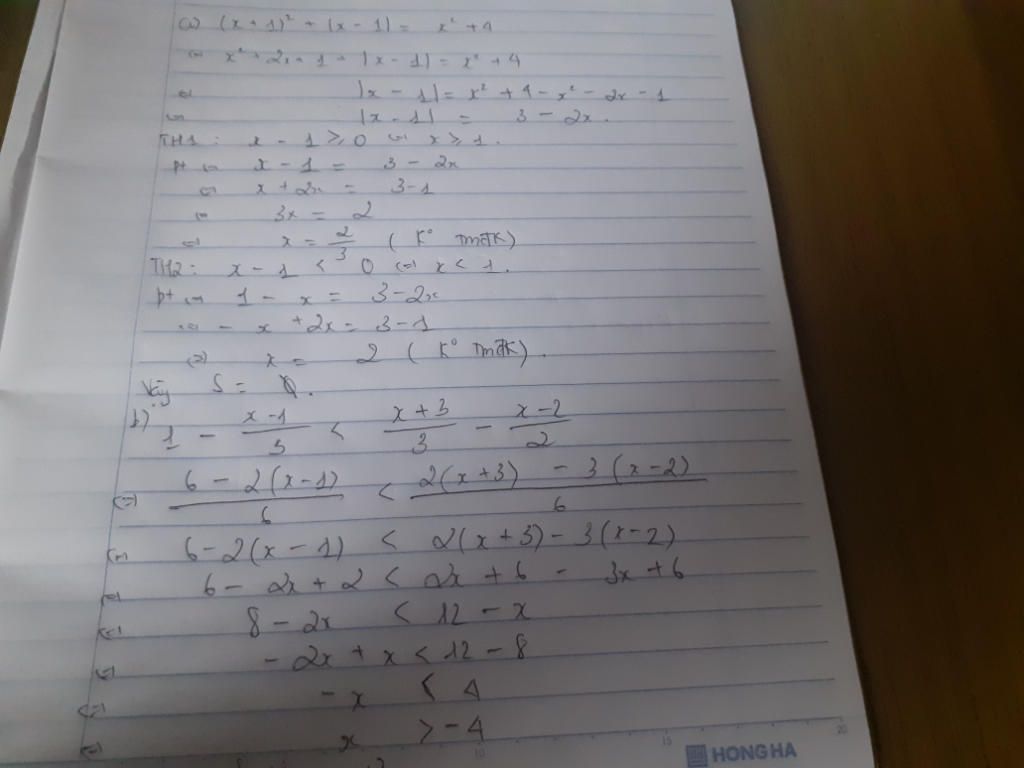 a) (x + 1)² + |x - 1| = x² + 4
⇔ x² + 2x + 1 + |x - 1| = x² + 4
⇔ |x - 1| = x² + 4 - x² - 2x - 1
⇔ |x - 1| = 3 - 2x.
TH1: x - 1 ≥ 0 ⇔ x ≥ 1.
pt ⇔ x - 1 = 3 - 2x
⇔ x + 2x = 3-1
⇔ 3x = 2
⇔ x = 2/3 (K° TmĐK)
TH2: x - 1 < 0 ⇔ x < 1.
pt ⇔ 1 - x = 3 - 2x
⇔ - x + 2x = 3 - 1
⇔ x = 2 (K° TmĐK).
Vậy S = ∅.
b) 1 - (x-1)/3 < (x+3)/3 - (x-2)/2
⇔ (6 - 2(x-1))/6 < (2(x+3) - 3(x-2))/6
⇔ 6-2(x-1) < 2(x+3) - 3(x-2)
⇔ 6 - 2x + 2 < 2x + 6 - 3x + 6
⇔ 8 - 2x < 12 - x
⇔ - 2x + x < 12 - 8
⇔ - x < 4
⇔ x > -4
10 15 20
HONG HA